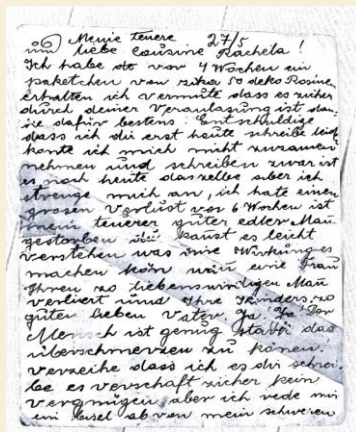 Meine teuere 27/5
und liebe Cousine Rachela!
Ich habe vor 4 Wochen ein
paketchen von zirka 50 deko Rosinen
erhalten ich vermute dass es sicher
durch deiner Veranlasung ist dan-
ke dafür bestens Entschuldige
dass ich dir erst heute schreibe leid
konte ich mich nicht zusamen
nehmen und schreiben zwar ist
es noch heute daszelbe aber ich
strenge mich an, ich hate einen
grosen Verlust vor 6 Wochen ist
mein teuerer guter edler Man
gestorben du kanst es leicht
verstehen was eine Wirkung es
machen kön wen eine Frau
Ihren zo liebenswirdigen Man
verliert und Ihre Kinders zo
guter lieben Vater. Ja Ja der
Mensch ist genug stark das
überschmerzen zu könen.
verzeihe dass ich es dir schrei-
be es verschaft sicher kein
vergnügen aber ich rede mir
ein bisel ab von mein schweren